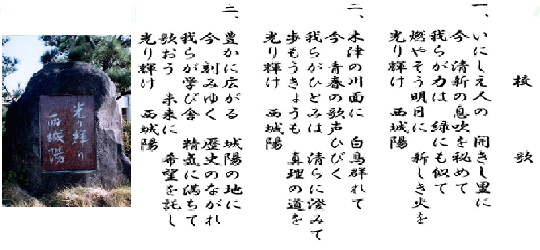 校歌
一、いにしえ人の 開きし里に
今 清新の息吹を秘めて
我らが力は 緑にも似て
燃やそう明日に 新しき火を
光り輝け 西城陽
二、木津の川面に 白鳥群れて
今 青春の歌声ひびく
我らがひとみは 清らに澄みて
歩もうきょうも 真理の道を
光り輝け 西城陽
三、豊かに広がる 城陽の地に
今 刻みゆく 歴史のながれ
我らが学び舎 精気に満ちて
歌おう 未来に 希望を託し
光り輝け 西城陽
光り輝け
西城陽